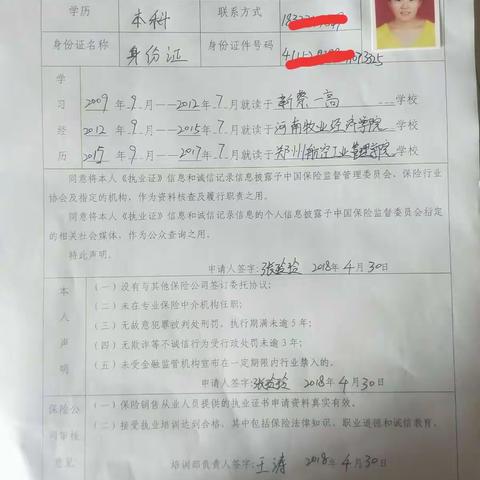 学历 本科 联系方式
身份证名称 身份证 身份证件号码
学习经历
2009年9月——2012年7月就读于新蔡一高学校
2012年9月——2015年7月就读于河南牧业经济学院学校
2015年9月——2017年7月就读于郑州航空工业管理学院学校
同意将本人《执业证》信息和诚信记录信息披露子中国保险监督管理委员会、保险行业
协会及指定的机构，作为资料核查及履行职责之用。
同意将本人《执业证》信息和诚信记录信息的个人信息披露子中国保险监督委员会指定
的相关社会媒体，作为公众查询之用。
特此声明。
申请人签字: 2018年4月30日
本人声明
（一）没有与其他保险公司签订委托协议;
（二）未在专业保险中介机构任职;
（三）无故意犯罪被判处刑罚，执行期满未逾5年;
（四）无欺诈等不诚信行为受行政处罚未逾3年;
（五）未受金融监管机构宣布在一定期限内行业禁入的。
申请人签字: 2018年4月30日
保险公司审核意见
（一）保险销售从业人员提供的执业证书申请资料真实有效。
（二）接受执业培训达到合格，其中包括保险法律知识、职业道德和诚信教育。
培训部负责人签字:王涛 2018年4月30日